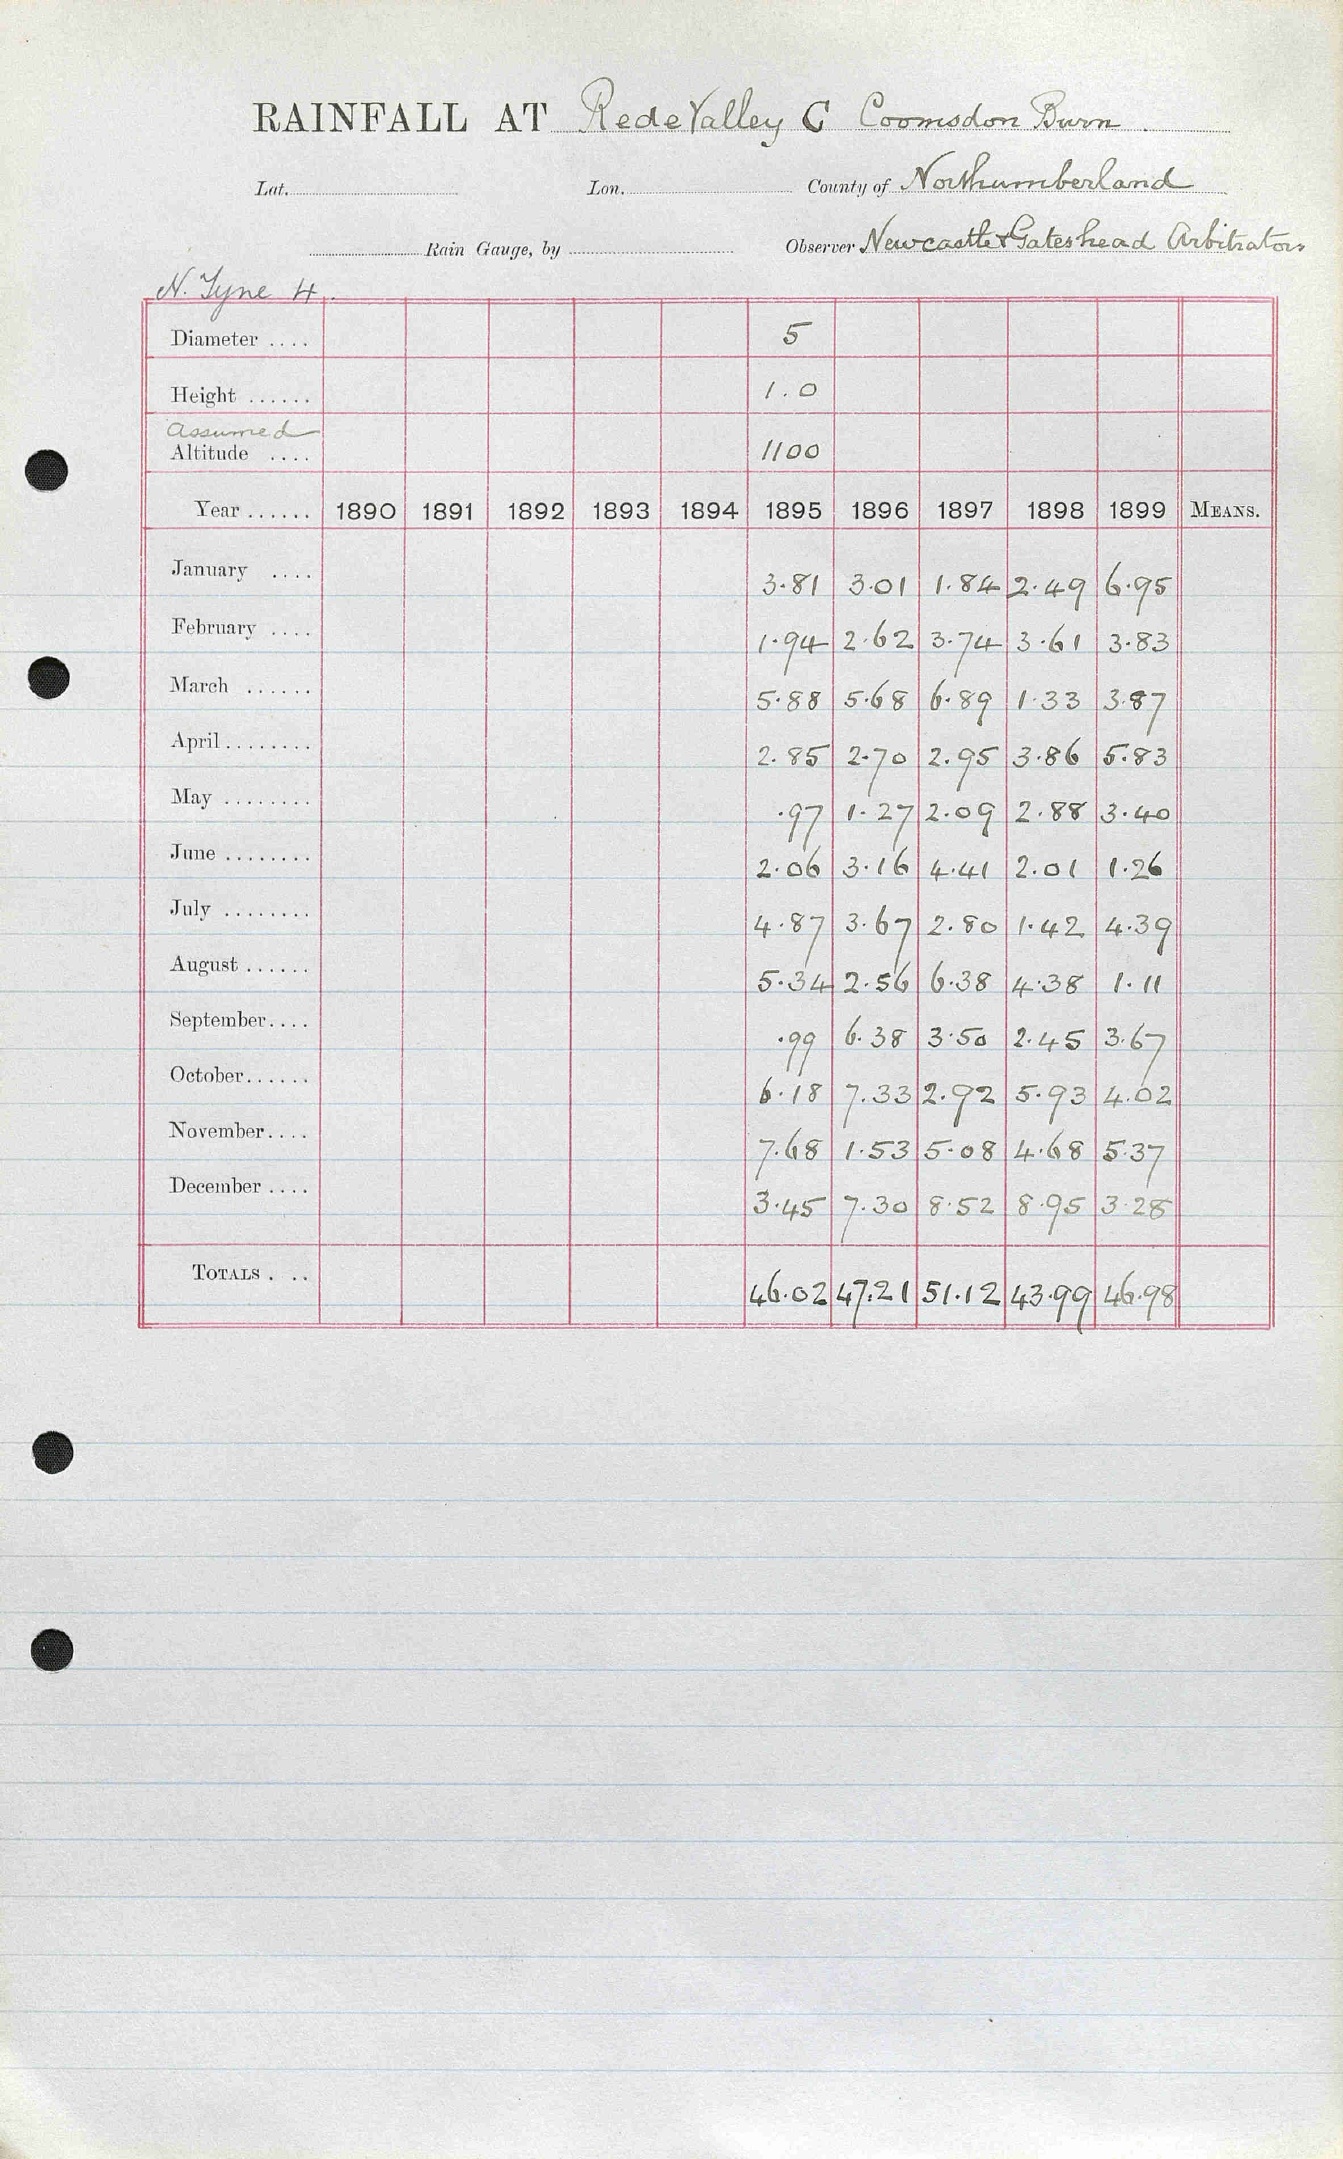 RAINFALL AT Rede Valley C Coomsdon Burn.
Lat. Lon. County of Northumberland
Rain Gauge, by Observer Newcastle & Gateshead Arbitrators
N. Tyne 4.
Diameter .... 5
Height ...... 1.0
Assumed
Altitude .... 1100
Year ...... 1890 1891 1892 1893 1894 1895 1896 1897 1898 1899 MEANS.
January .... 3.81 3.01 1.84 2.49 6.95
February .... 1.94 2.62 3.74 3.61 3.83
March ...... 5.88 5.68 6.89 1.33 3.87
April........ 2.85 2.70 2.95 3.86 5.83
May ........ .97 1.27 2.09 2.88 3.40
June ........ 2.06 3.16 4.41 2.01 1.26
July ........ 4.87 3.67 2.80 1.42 4.39
August ...... 5.34 2.56 6.38 4.38 1.11
September.... .99 6.38 3.50 2.45 3.67
October...... 6.18 7.33 2.92 5.93 4.02
November.... 7.68 1.53 5.08 4.68 5.37
December .... 3.45 7.30 8.52 8.95 3.28
TOTALS . .. 46.02 47.21 51.12 43.99 46.98